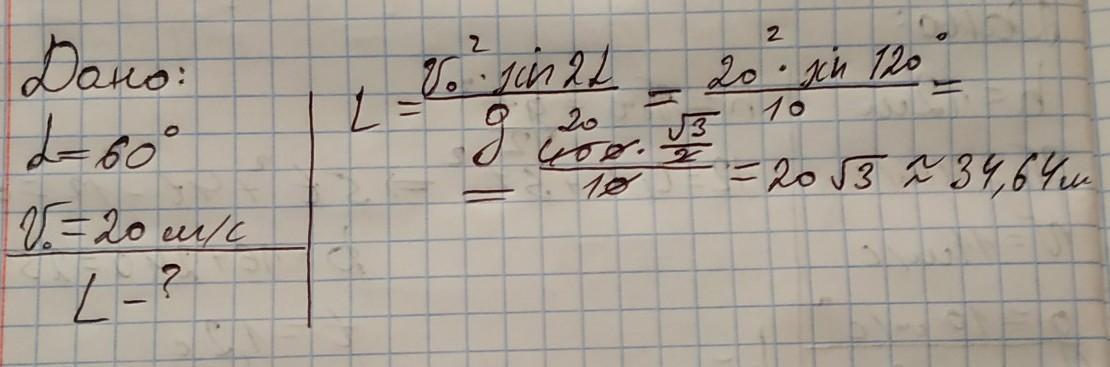 Дано:
α = 60°
V₀ = 20 м/с
L - ?
L = V₀² · sin 2α / g = 20² · sin 120° / 10 =
= 400 · √3/2 / 10 = 20√3 ≈ 34,64 м
20